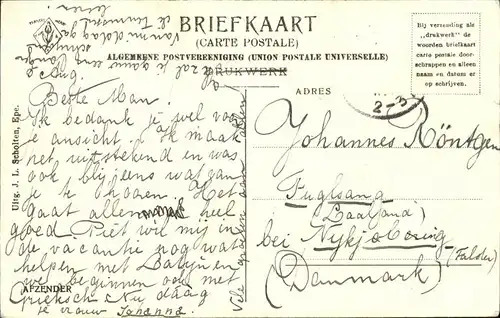 BRIEFKAART
(CARTE POSTALE)
ALGEMEENE POSTVEREENIGING (UNION POSTALE UNIVERSELLE)
DRUKWERK
Bij verzending als
„drukwerk" de
woorden briefkaart
carte postale door-
schrappen en alleen
naam en datum er
op schrijven.
ADRES
2-3
Uitg. J. L. Scholten, Epe.
Aug.
Beste Man.
Ik bedank je wel voor
je ansicht. Ik maak
het uitstekend en was
ook blij eens wat van
je te hooren. Het
gaat allemaal heel
goed Piet wil mij in
de vacantie nog wat
helpen met Latijn en
we beginnen ook met
Grieksch. Nu daag
je vrouw Johanna.
Vele groeten aan allen
AFZENDER
Johannes Röntgen
Fuglsang
(Laaland)
bei Nykjøbing
(Falster)
(Danmark)